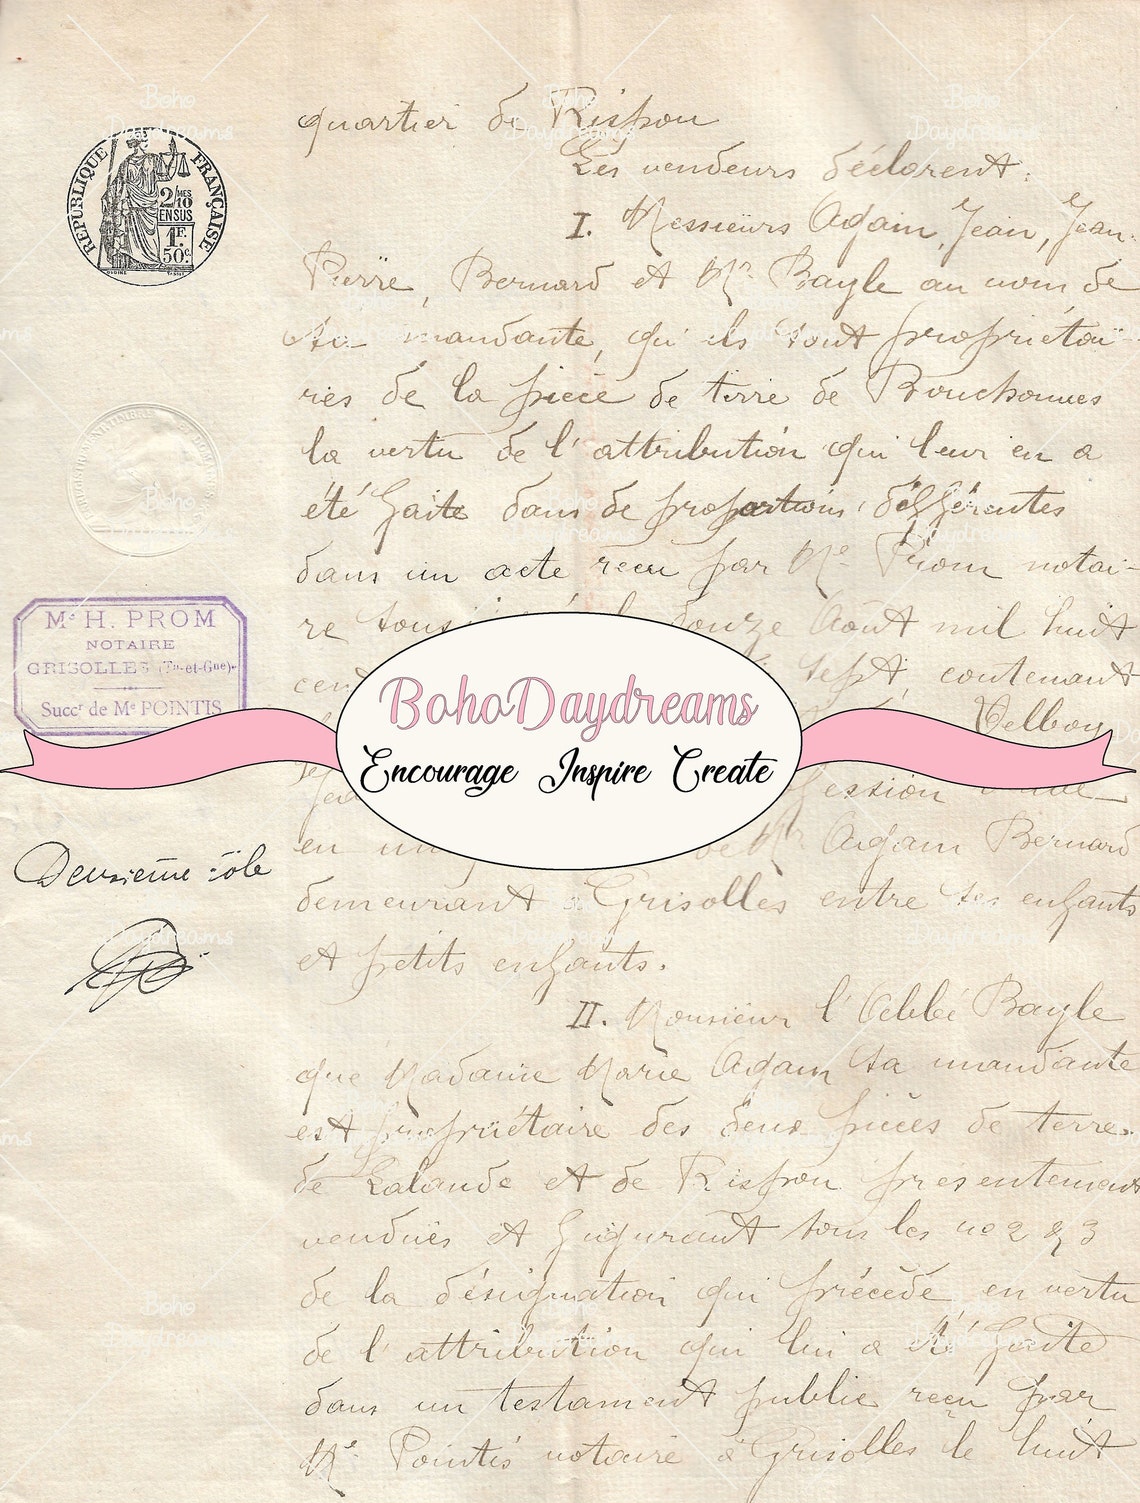 quartier de Rispou
Les vendeurs déclarent:
RÉPUBLIQUE FRANÇAISE
2/10 MES
EN SUS
1F.
50c.
I. Messieurs Agam, Jean, Jean-
Pierre, Bernard et Mr Bayle au nom de
sa mandante, qu'ils sont propriétai-
res de la pièce de terre de Bouchonnes
la vertu de l'attribution qui leur en a
été faite dans de proportions différentes
dans un acte recu par Me Prom notai-
re douze Août mil huit
cent sept, contenant
Me H. PROM
NOTAIRE
GRISOLLES (Tn-et-Gne)
Succr de Me POINTIS
BohoDaydreams
Encourage Inspire Create
Delboy
cession
en de Mr Agam Bernard
Deuxième rôle
demeurant à Grisolles entre ses enfants
et petits enfants.
II. Monsieur l'Abbé Bayle
que Madame Marie Agam sa mandante
est propriétaire des deux pièces de terre
de Lalande et de Rispou présentement
vendues et figurant sous les nos 2 & 3
de la désignation qui précède en vertu
de l'attribution qui lui a été faite
dans un testament public recu par
Me Pointis notaire à Grisolles le huit
Boho Daydreams